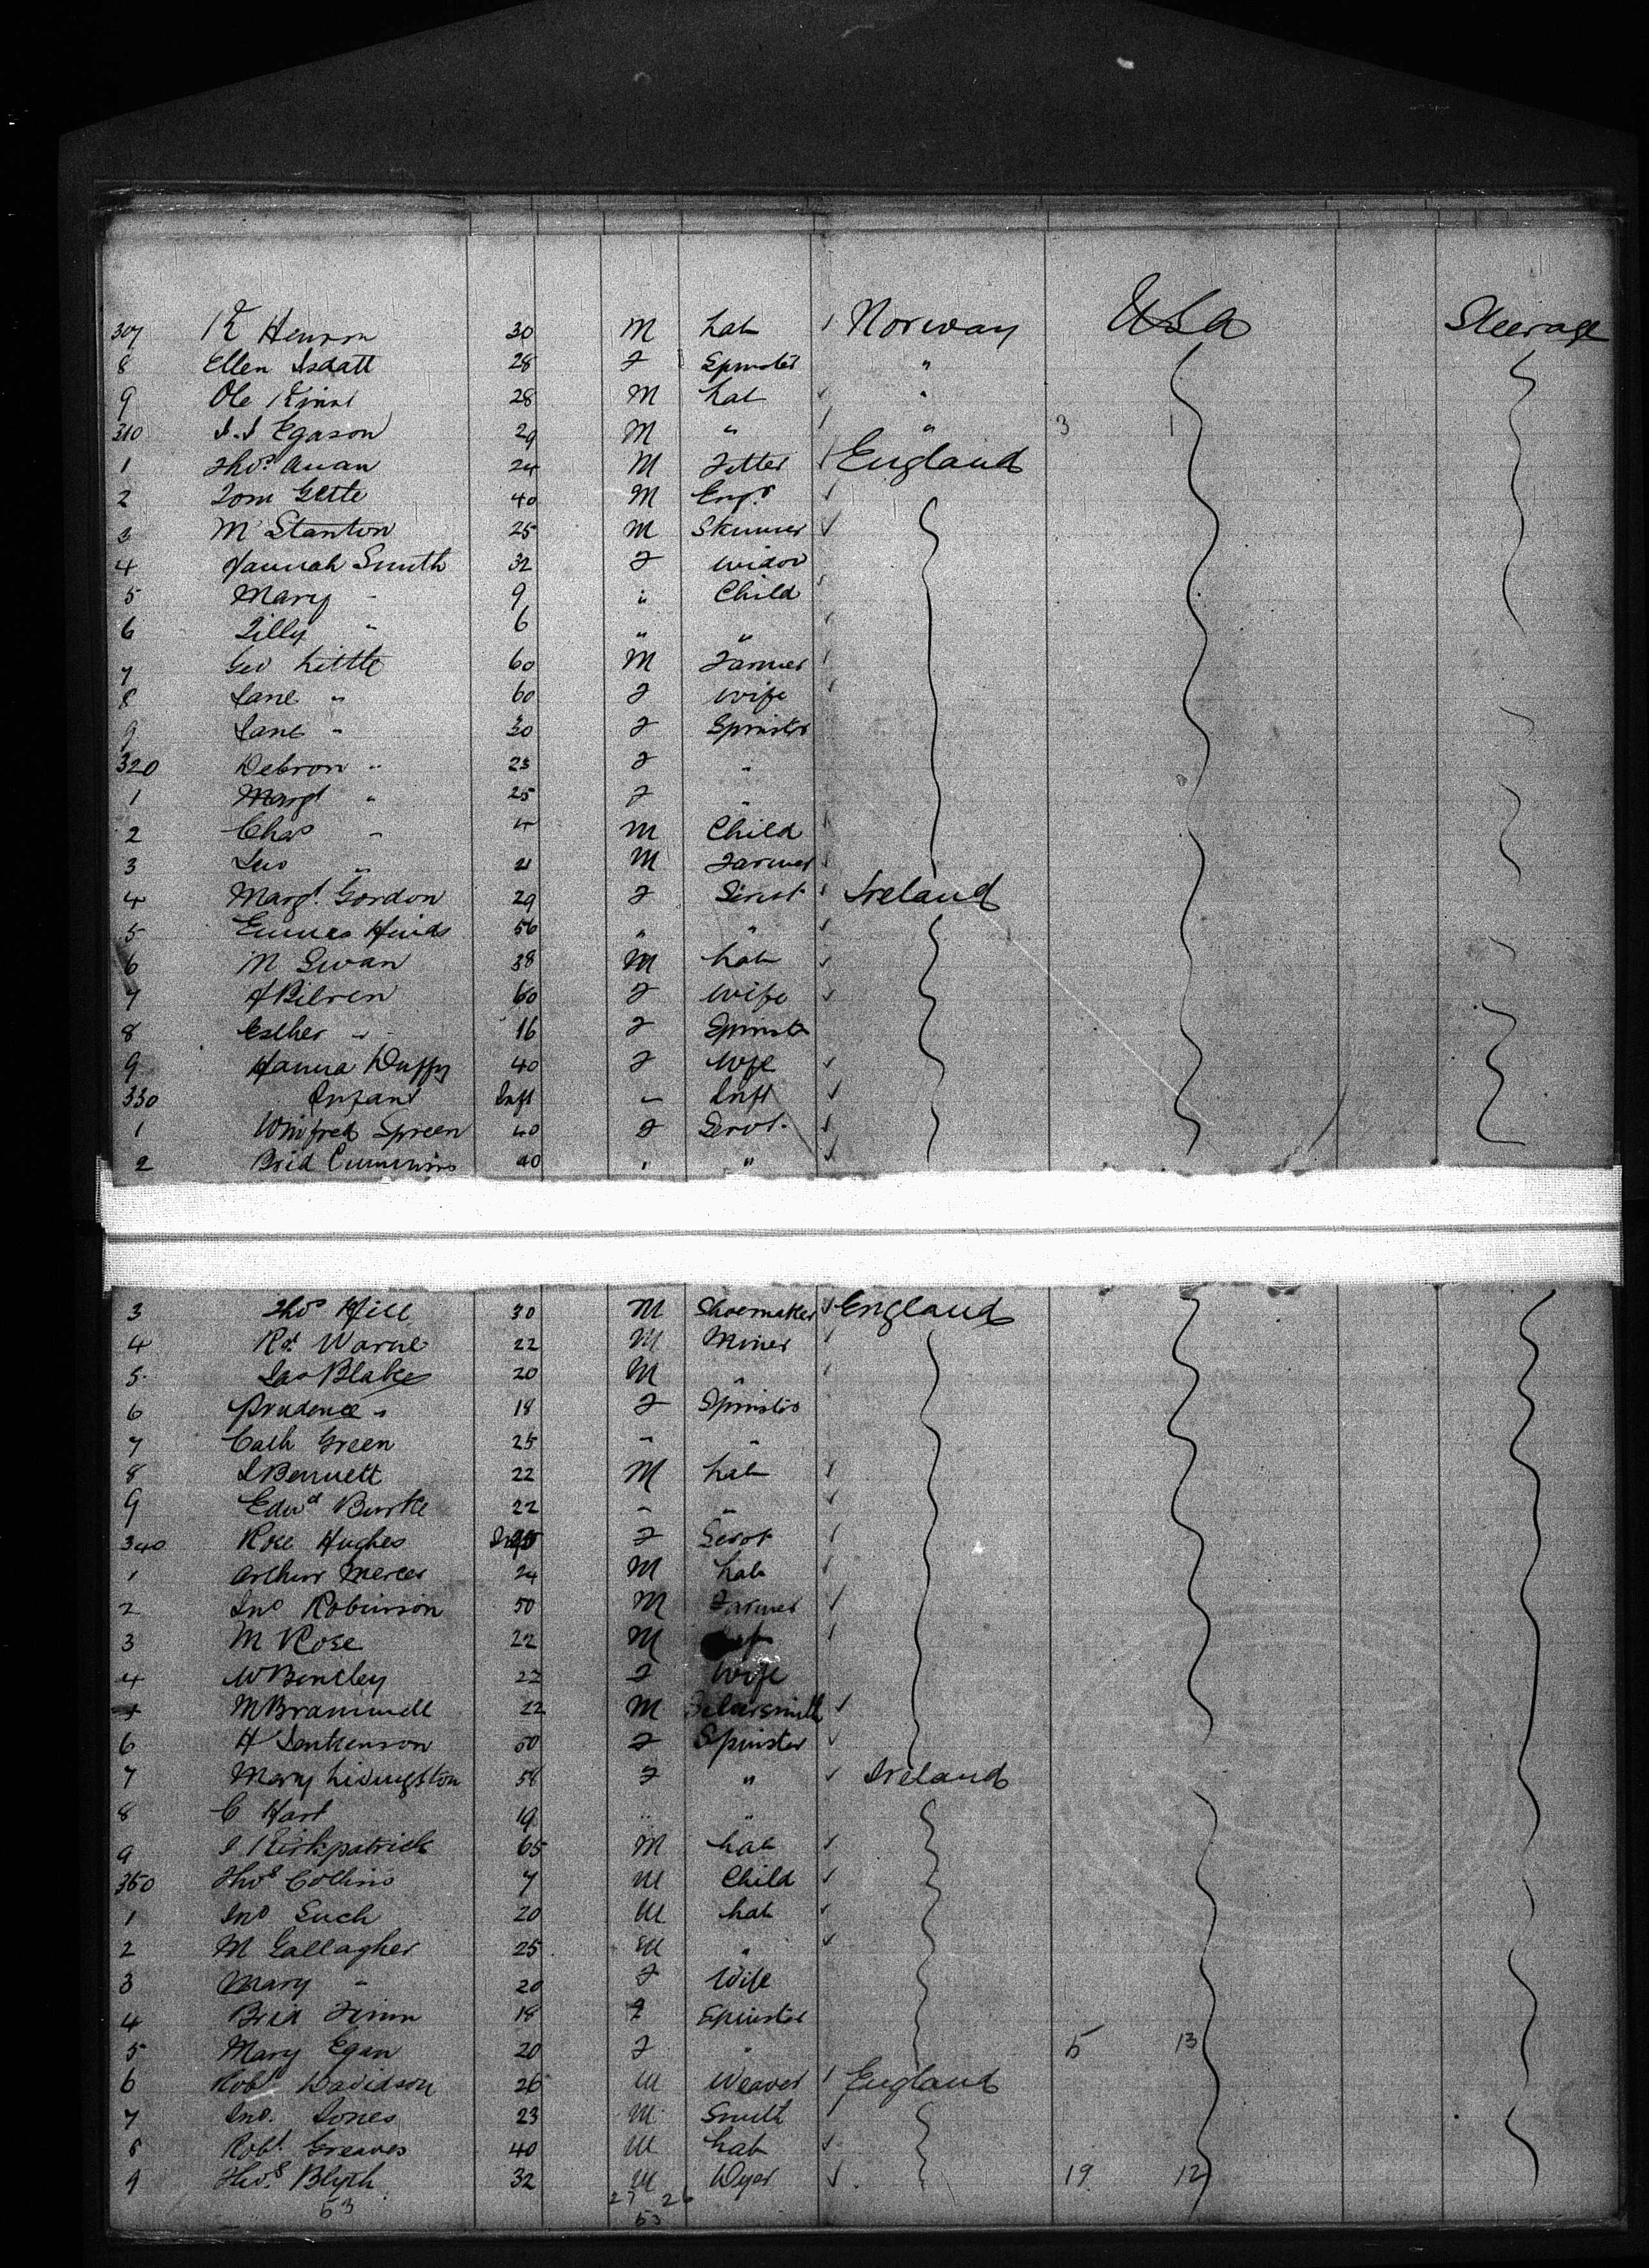 307 K Henson 30 M Lab / Norway USA Steerage
8 Ellen Isdatt 28 F Spinster "
9 Ole 28 M Lab ✓ "
310 I.I Egason 29 M " / " 3 1
1 Thos. Auan 24 M Fitter / England
2 Tom Gette 40 M Engr. ✓
3 M Stanton 25 M Skinner ✓
4 Hannah Smith 32 F Widow
5 Mary " 9 " Child
6 Lilly " 6 " "
7 Geo Little 60 M Farmer /
8 Jane " 60 F Wife
9 Jane " 30 F Spinster
320 " 23 F "
1 Margt " 25 F "
2 Chas " 4 M Child
3 " 21 M Farmer
4 Margt. Gordon 29 F Servt Ireland
5 Emma Hinds 56 " " ✓
6 M Swan 38 M Lab ✓
7 60 F Wife ✓
8 Esther " 16 F Spinstr
9 Hanna Duffy 40 F Wife ✓
330 Infant Inft " Inft ✓
1 Winifred Spreen 40 F Servt. ✓
2 Brid Cummins 40 " " ✓
3 Thos Hill 30 M Shoemaker ✓ England
4 Rd. Warne 22 M Miner /
5 Jas Blake 20 M " /
6 Prudence " 18 F Spinster
7 Cath Green 25 " "
8 Bennett 22 M Lab ✓
9 Edwd Burke 22 " " ✓
340 Rose Hughes F Servt /
1 Arthur Mercer 24 M Lab /
2 Jno Robinson 50 M Farmer /
3 M Rose 22 M /
4 W Bentley 22 F Wife
M Bramwell 22 M Silversmith ✓
6 H Jenkenson 50 F Spinster ✓
7 Mary Livingston 58 F " ✓ Ireland
8 C Hart 19 " "
9 Kirkpatrick 65 M Lab ✓
350 Thos Collins 7 M Child ✓
1 Jno Such 20 M Lab ✓
2 M Gallagher 25 M " ✓
3 Mary " 20 F Wife
4 Brid Finn 18 F Spinster
5 Mary Egan 20 F " 5 13
6 Robt Davidson 26 M Weaver / England
7 Jno. Jones 23 M Smith
8 Robt. Greaves 40 M Lab ✓
9 Thos. Blyth 32 M Dyer ✓ 19 12
53 27 26
53